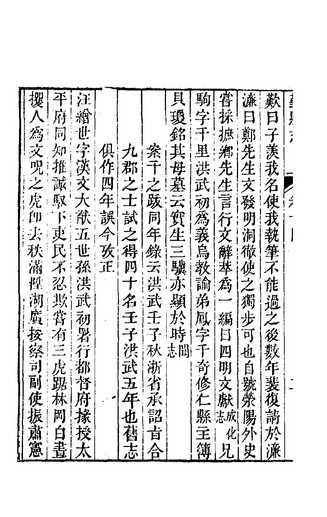 歎曰子羨我名使我執筆不能過之後數年裝復請於濂
濂曰鄭先生文發明洞徹使之獨步可也自號滎陽外史
嘗採摭鄉先生言行文辭萃爲一編目曰四明文獻成化志兄
駒字千里洪武初爲義烏教諭弟鳳字千奇修仁縣主簿
貝瓊銘其母墓云實生三驥亦顯於時聞志
案千之跋同年錄云洪武壬子秋浙省承詔旨合
九郡之士試之得四十名壬子洪武五年也舊志
俱作四年誤今攷正
汪繒世字漢文大猷五世孫洪武初署行都督府掾授太
平府同知推誠馭下吏民不忍欺嘗有三虎踞林岡白晝
攫人爲文呪之虎帥去秩滿陞湖廣按察司副使振肅憲